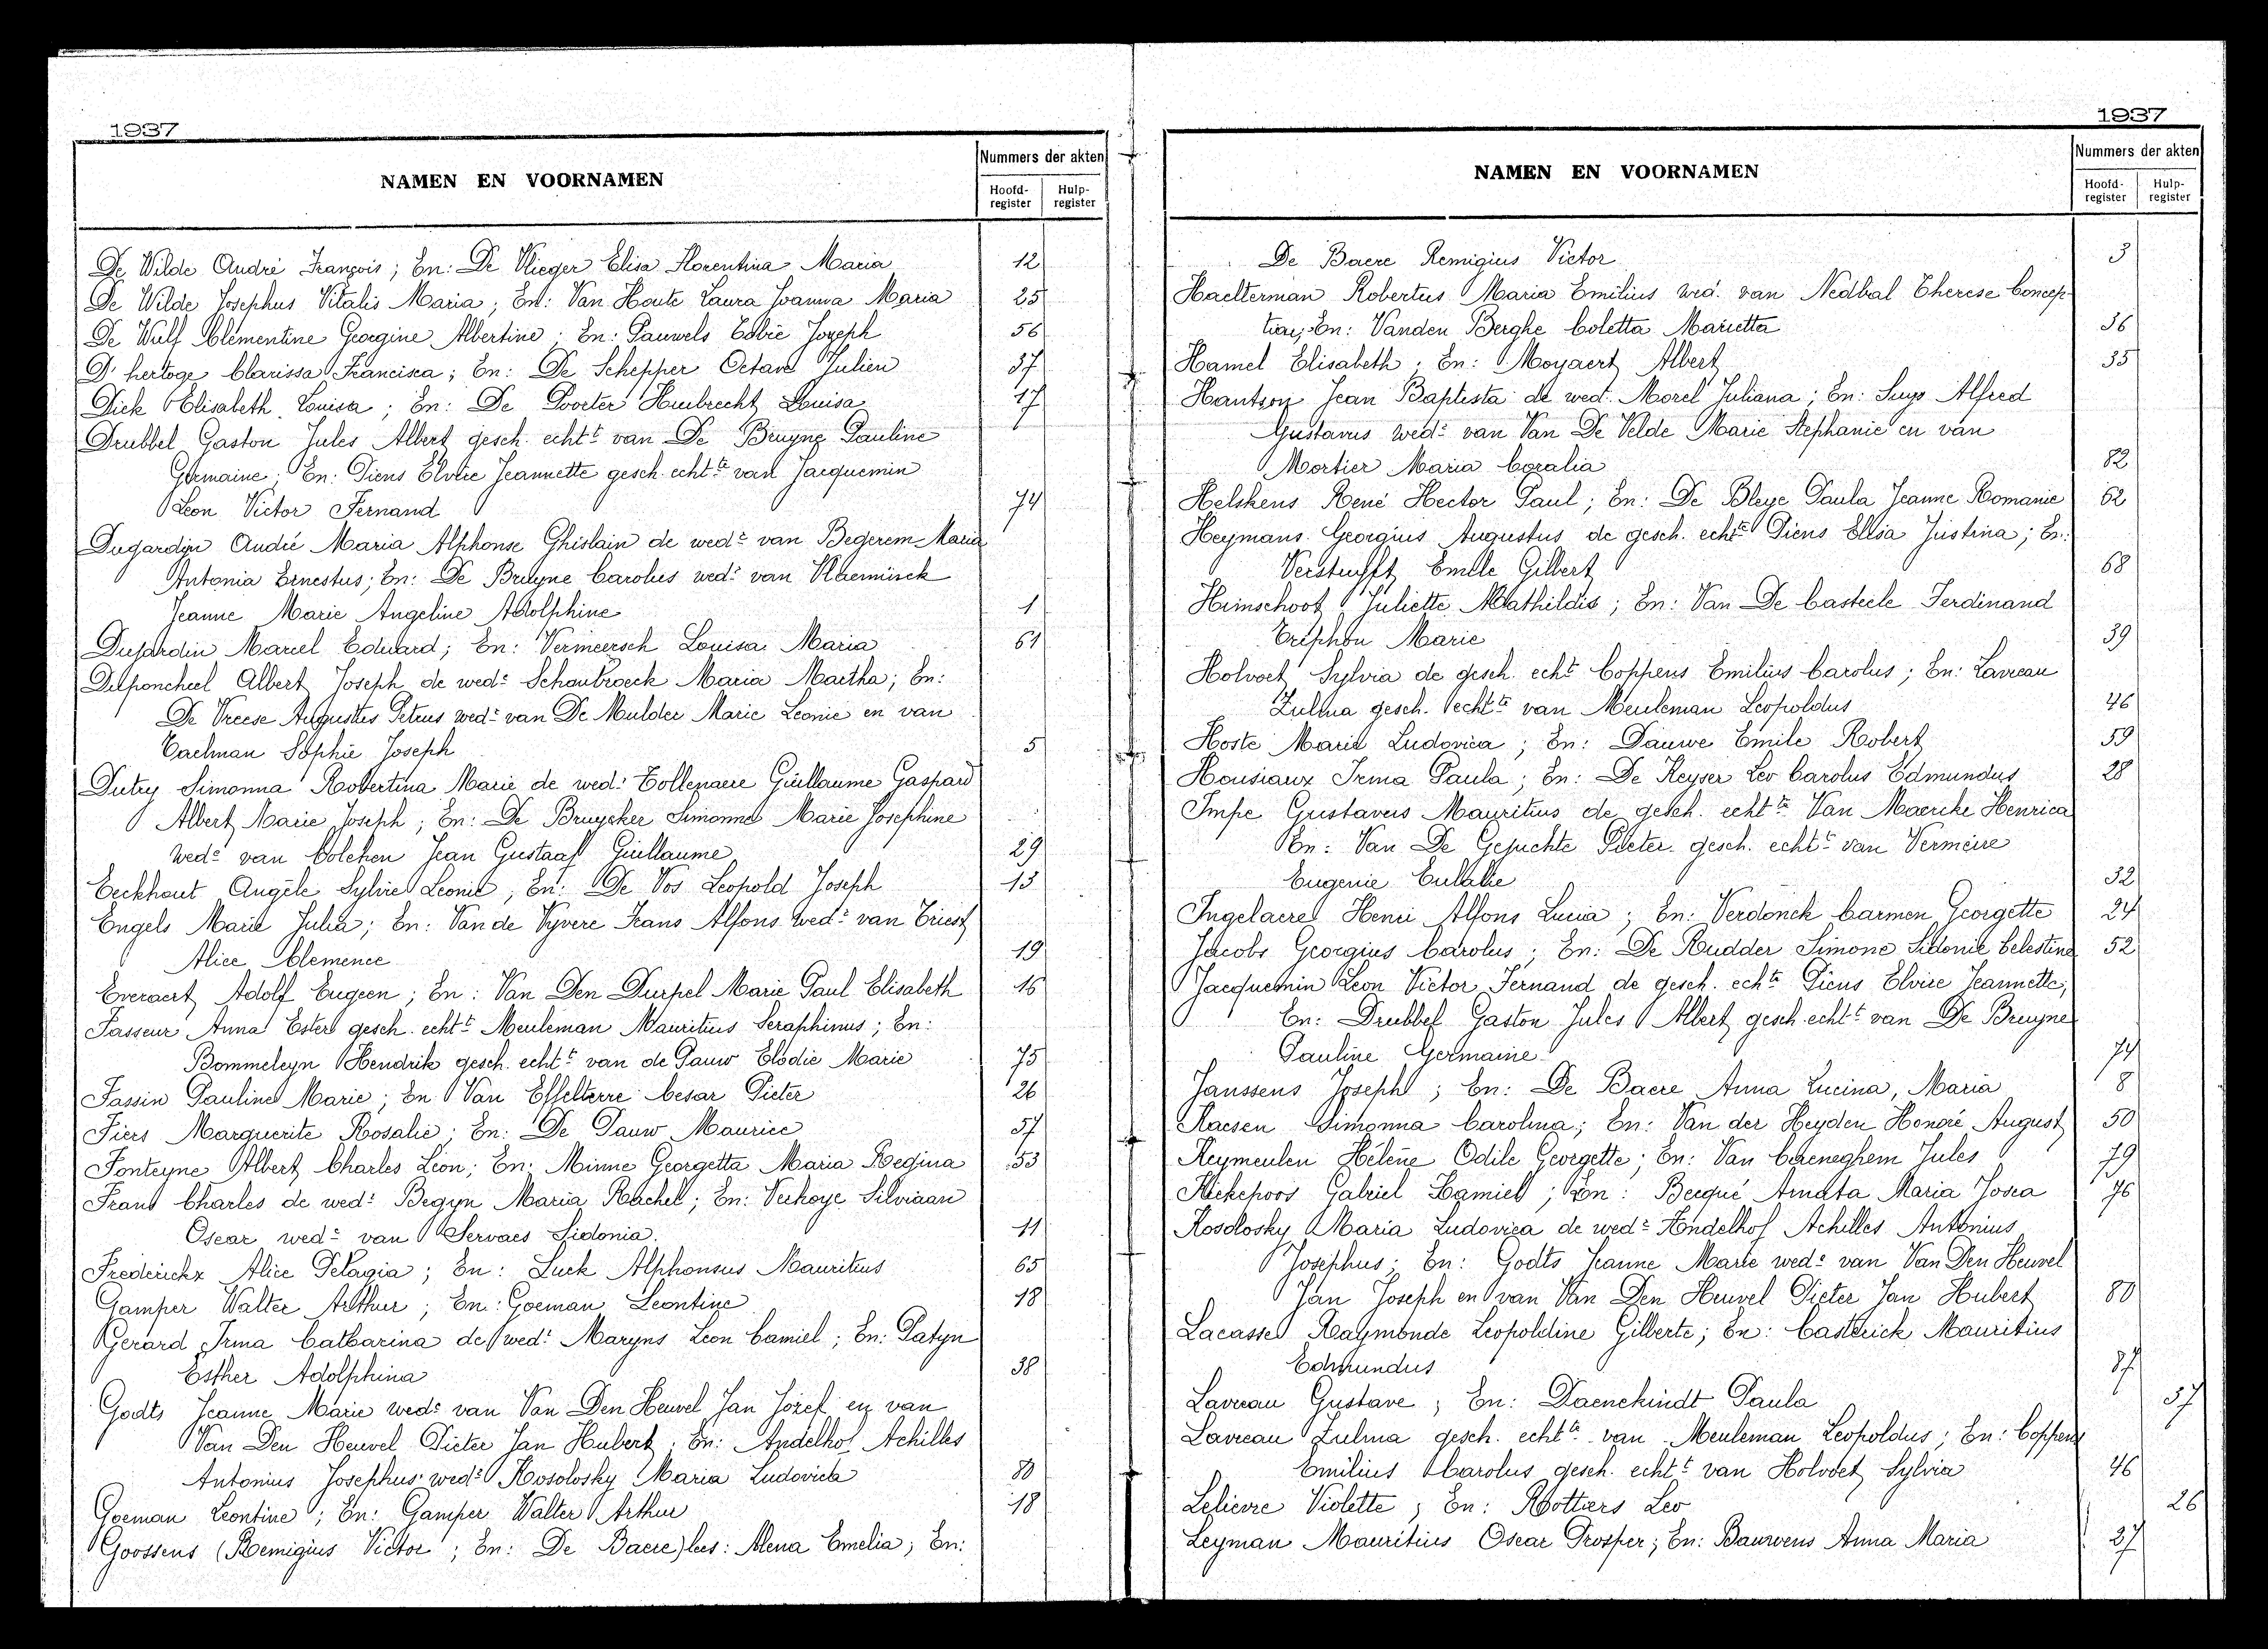 1937
NAMEN EN VOORNAMEN
Nummers der akten
Hoofd-register
Hulp-register
De Wilde André François; En: De Vlieger Elisa Florentina Maria 12
De Wilde Josephus Vitalis Maria; En: Van Houte Laura Joanna Maria 25
De Wulf Clémentine Georgine Albertine; En: Pauwels Jozeph 56
D'hertoge Clarissa Francisca; En: De Schepper Octave Julien 37
Dick Elisabeth Louisa; En: De Poorter Huibrecht Louisa 17
Drubbel Gaston Jules Albert gesch. echtt van De Bruyne Pauline
Germaine; En: Diens Elvire Jeannette gesch. echtte van Jacquemin
Leon Victor Fernand 74
Dugardijn André Maria Alphonse Ghislain de wedr van Begerem Maria
Antonia Ernestus; En: De Bruyne Carolus wedr van Vlaeminck
Jeanne Marie Angeline Adolphine 1
Dujardin Marcel Eduard; En: Vermeersch Louisa Maria 61
Dulponcheel Albert Joseph de wedr Schoubroeck Maria Martha; En:
De Vreese Augustus Petrus wedr van De Mulder Marie Leonie en van
Taelman Sophie Joseph 5
Dutry Simonna Robertina Marie de wedr Tollenaere Guillaume Gaspard
Albert Marie Joseph; En: De Bruycker Simonne Marie Josephine
wede van Colchen Jean Gustaaf Guillaume 29
Eeckhout Angèle Sylvie Leonie; En: De Vos Leopold Joseph 13
Engels Marie Julia; En: Van de Vyvere Frans Alfons wedr van Triest
Alice Clemence 19
Everaert Adolf Eugeen; En: Van Den Durpel Marie Paul Elisabeth 16
Fasseur Anna Ester gesch. echtt Meuleman Mauritius Seraphinus; En:
Bommeleyn Hendrik gesch. echtt van de Pauw Elodie Marie 75
Fassin Pauline Marie; En Van Effelterre Cesar Pieter 26
Fiers Marguerite Rosalie; En: De Pauw Maurice 57
Fonteyne Albert Charles Léon; En: Minne Georgetta Maria Regina 53
Frans Charles de wedr Begyn Maria Rachel; En: Verkoye Silviaan
Oscar wedr van Servaes Sidonia. 11
Frederickx Alice Pelagia; En: Luck Alphonsus Mauritius 65
Gamper Walter Arthur; En: Goeman Leontine 18
Gerard Irma Catharina de wedr Maryns Leon Camiel; En: Patyn
Esther Adolphina 38
Godts Jeanne Marie wede van Van Den Heuvel Jan Jozef en van
Van Den Heuvel Pieter Jan Hubert; En: Andelhof Achilles
Antonius Josephus wedr Kosolosky Maria Ludovica 80
Goeman Leontine; En: Gamper Walter Arthur 18
Goossens (Remigius Victor; En: De Baere) lees: Alena Emelia; En:
1937
NAMEN EN VOORNAMEN
Nummers der akten
Hoofd-register
Hulp-register
De Baere Remigius Victor 3
Haelterman Robertus Maria Emilius wed. van Nedbal Therese Concep-
tion; En: Vanden Berghe Coletta Marietta 36
Hamel Elisabeth; En: Moyaert Albert 35
Hantson Jean Baptista de wed. Morel Juliana; En: Suys Alfred
Gustavus wedr van Van De Velde Marie Stephanie en van
Mortier Maria Coralia 82
Helskens René Hector Paul; En: De Bleye Paula Jeanne Romanie 62
Heymans Georgius Augustus de gesch. echtte Diens Elisa Justina; En:
Verstuyft Emile Gilbert 68
Himschoot Juliette Mathildis; En: Van De Casteele Ferdinand
Triphon Marie 39
Holvoet Sylvia de gesch. echt Coppens Emilius Carolus; En: Lavreau
Zulma gesch. echtte van Meuleman Leopoldus 46
Hoste Marie Ludovica; En: Dauwe Emile Robert 59
Housiaux Irma Paula; En: De Keyser Leo Carolus Edmundus 28
Impe Gustavus Mauritius de gesch. echtte Van Maercke Henrica
En: Van De Gejuchte Pieter gesch. echtt van Vermeire
Eugenie Eulalie 32
Ingelaere Henri Alfons Lucia; En: Verdonck Carmen Georgette 24
Jacobs Georgius Carolus; En: De Rudder Simone Sidonie Celestine 52
Jacquemin Leon Victor Fernand de gesch. echte Diens Elvire Jeannette;
En: Drubbel Gaston Jules Albert gesch. echtt van De Bruyne
Pauline Germaine 74
Janssens Joseph; En: De Baere Anna Lucina, Maria 8
Kaesen Simonna Carolina; En: Van der Heyden Honoré August 50
Keymeulen Hélène Odile Georgette; En: Van Cereneghem Jules 79
Kiekepoos Gabriel Kamiel; En: Becqué Amata Maria Josea 76
Kosolosky Maria Ludovica de wedr Andelhof Achilles Antonius
Josephus; En: Godts Jeanne Marie wede van Van Den Heuvel
Jan Joseph en van Van Den Heuvel Pieter Jan Hubert 80
Lacasse Raymonde Leopoldine Gilberte; En: Casterick Mauritius
Edmundus 87
Lavreau Gustave; En: Daenekindt Paula 37
Lavreau Zulma gesch. echtte van Meuleman Leopoldus; En: Coppens
Emilius Carolus gesch. echtt van Holvoet Sylvia 46
Lelievre Violette; En: Rottiers Leo 26
Leyman Mauritius Oscar Prosper; En: Bauwens Anna Maria 27